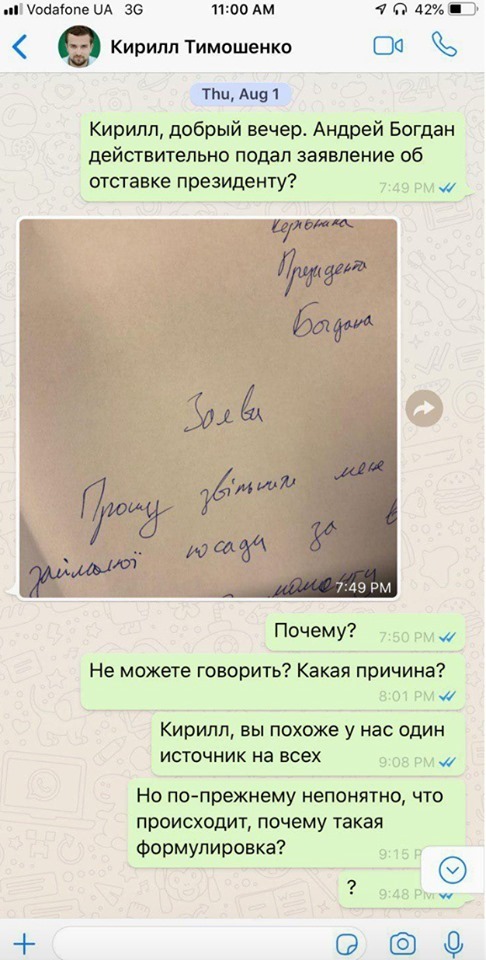 Vodafone UA 3G 11:00 AM 42%
Кирилл Тимошенко
Thu, Aug 1
Кирилл, добрый вечер. Андрей Богдан
действительно подал заявление об
отставке президенту?
7:49 PM
Керівника
Президента
Богдана
Заява
Прошу звільнити мене
займаної посади за в
моменту
7:49 PM
Почему?
7:50 PM
Не можете говорить? Какая причина?
8:01 PM
Кирилл, вы похоже у нас один
источник на всех
9:08 PM
Но по-прежнему непонятно, что
происходит, почему такая
формулировка?
9:15 P
?
9:48 PM